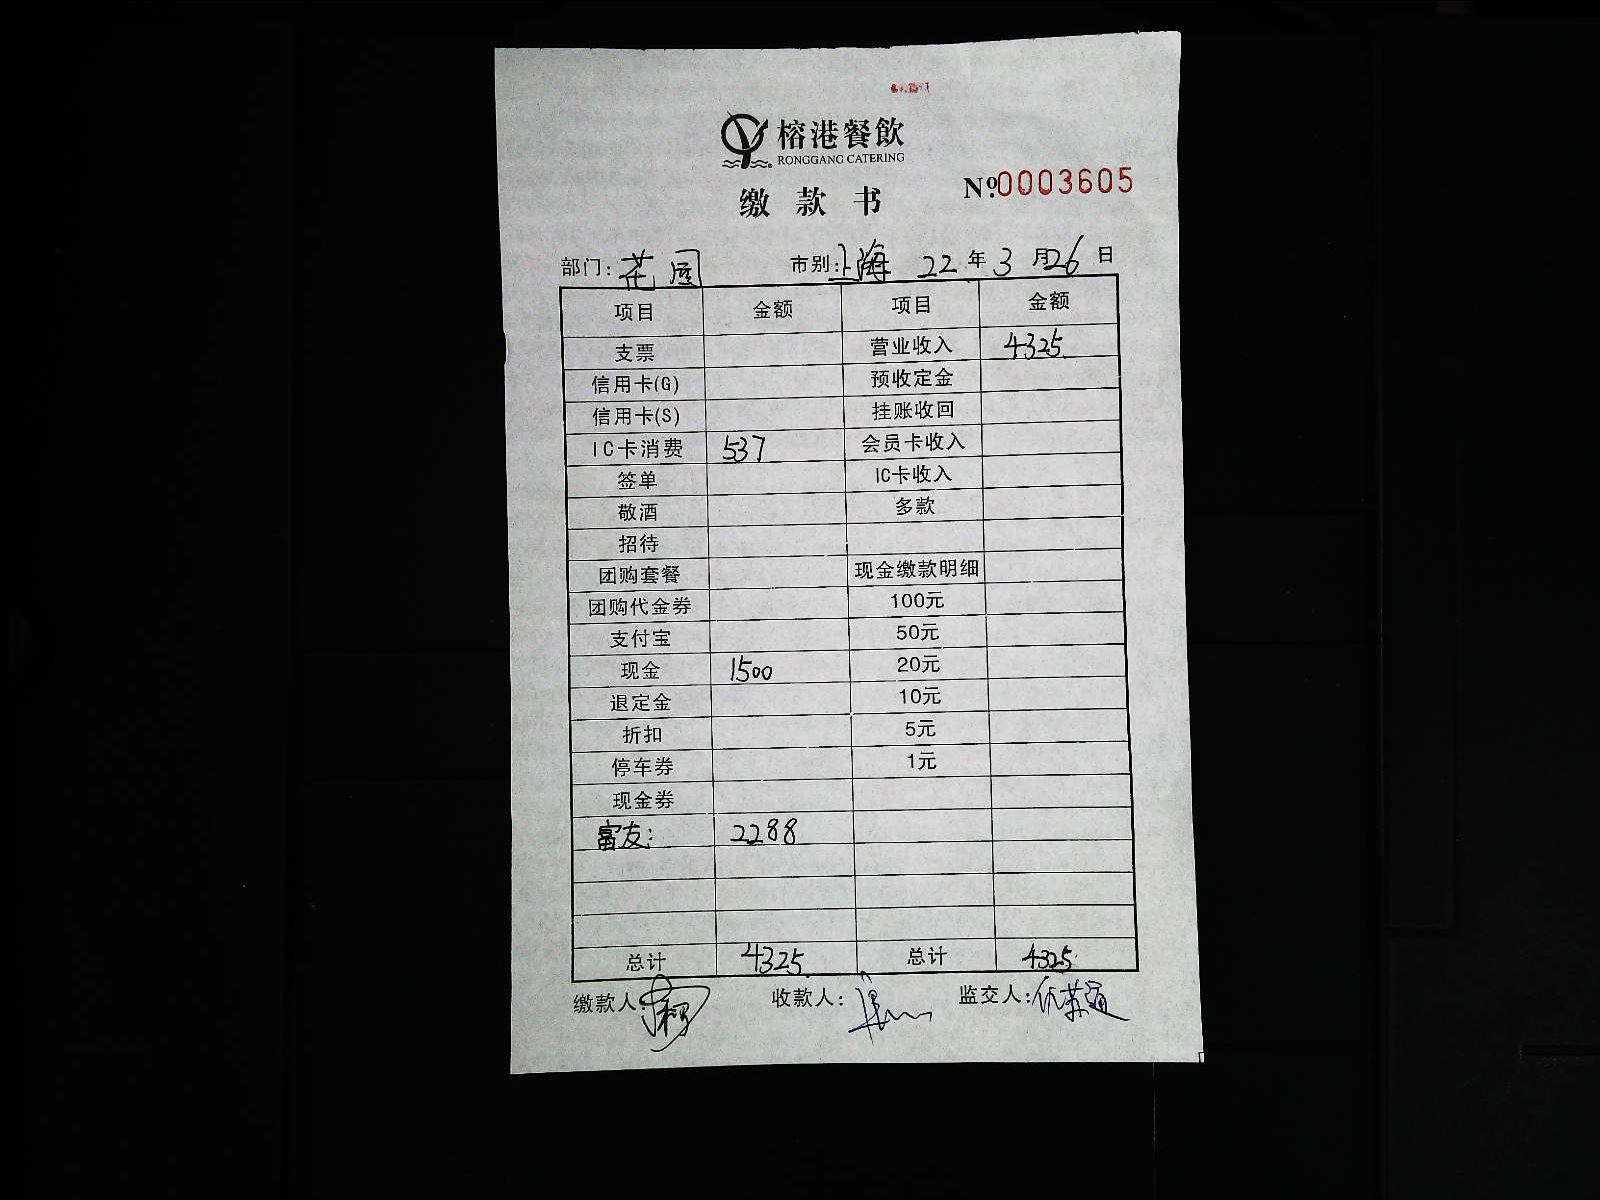 榕港餐飲
RONGGANG CATERING
缴款书
Nº.0003605
部门：花园 市别：上海 22年3月26日
项目 金额 项目 金额
支票 营业收入 4325
信用卡(G) 预收定金
信用卡(S) 挂账收回
IC卡消费 537 会员卡收入
签单 IC卡收入
敬酒 多款
招待
团购套餐 现金缴款明细
团购代金券 100元
支付宝 50元
现金 1500 20元
退定金 10元
折扣 5元
停车券 1元
现金券
富友： 2288
总计 4325 总计 4325
缴款人： 收款人： 监交人：